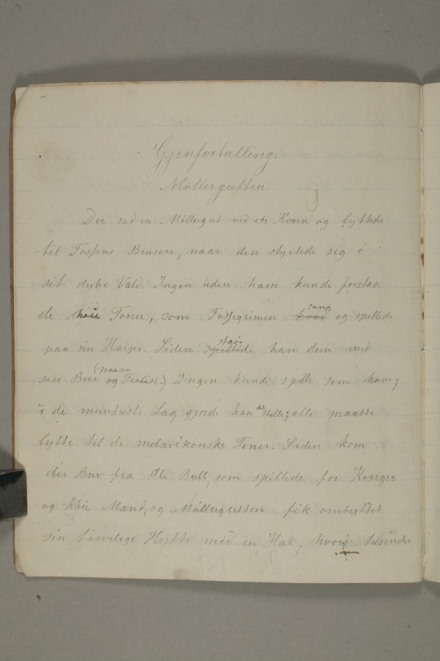 Gjenfortælling.
Møllergutten.
Der sad en Møllergut ved et Kværn og lyttede
til Fossens Brusen, naar den styrtede sig i
det dybe Vald. Ingen uden ham kunde forstaa
de høie Toner, som Fossegrimen sang og spillede
paa sin Harpe. Siden han dem med
sin Bue (naar og Fiolin.) Ingen kunde spille som han;
i de muntreste Lag gjorde han alle maatte
lytte til de melankonske Toner. Siden kom
der Bud fra Ole Bull, som spillede for Konger
og høie Mænd, og Møllergutten fik ombyttet
sin tarvelige Hytte med en Hal, hvori tusinder